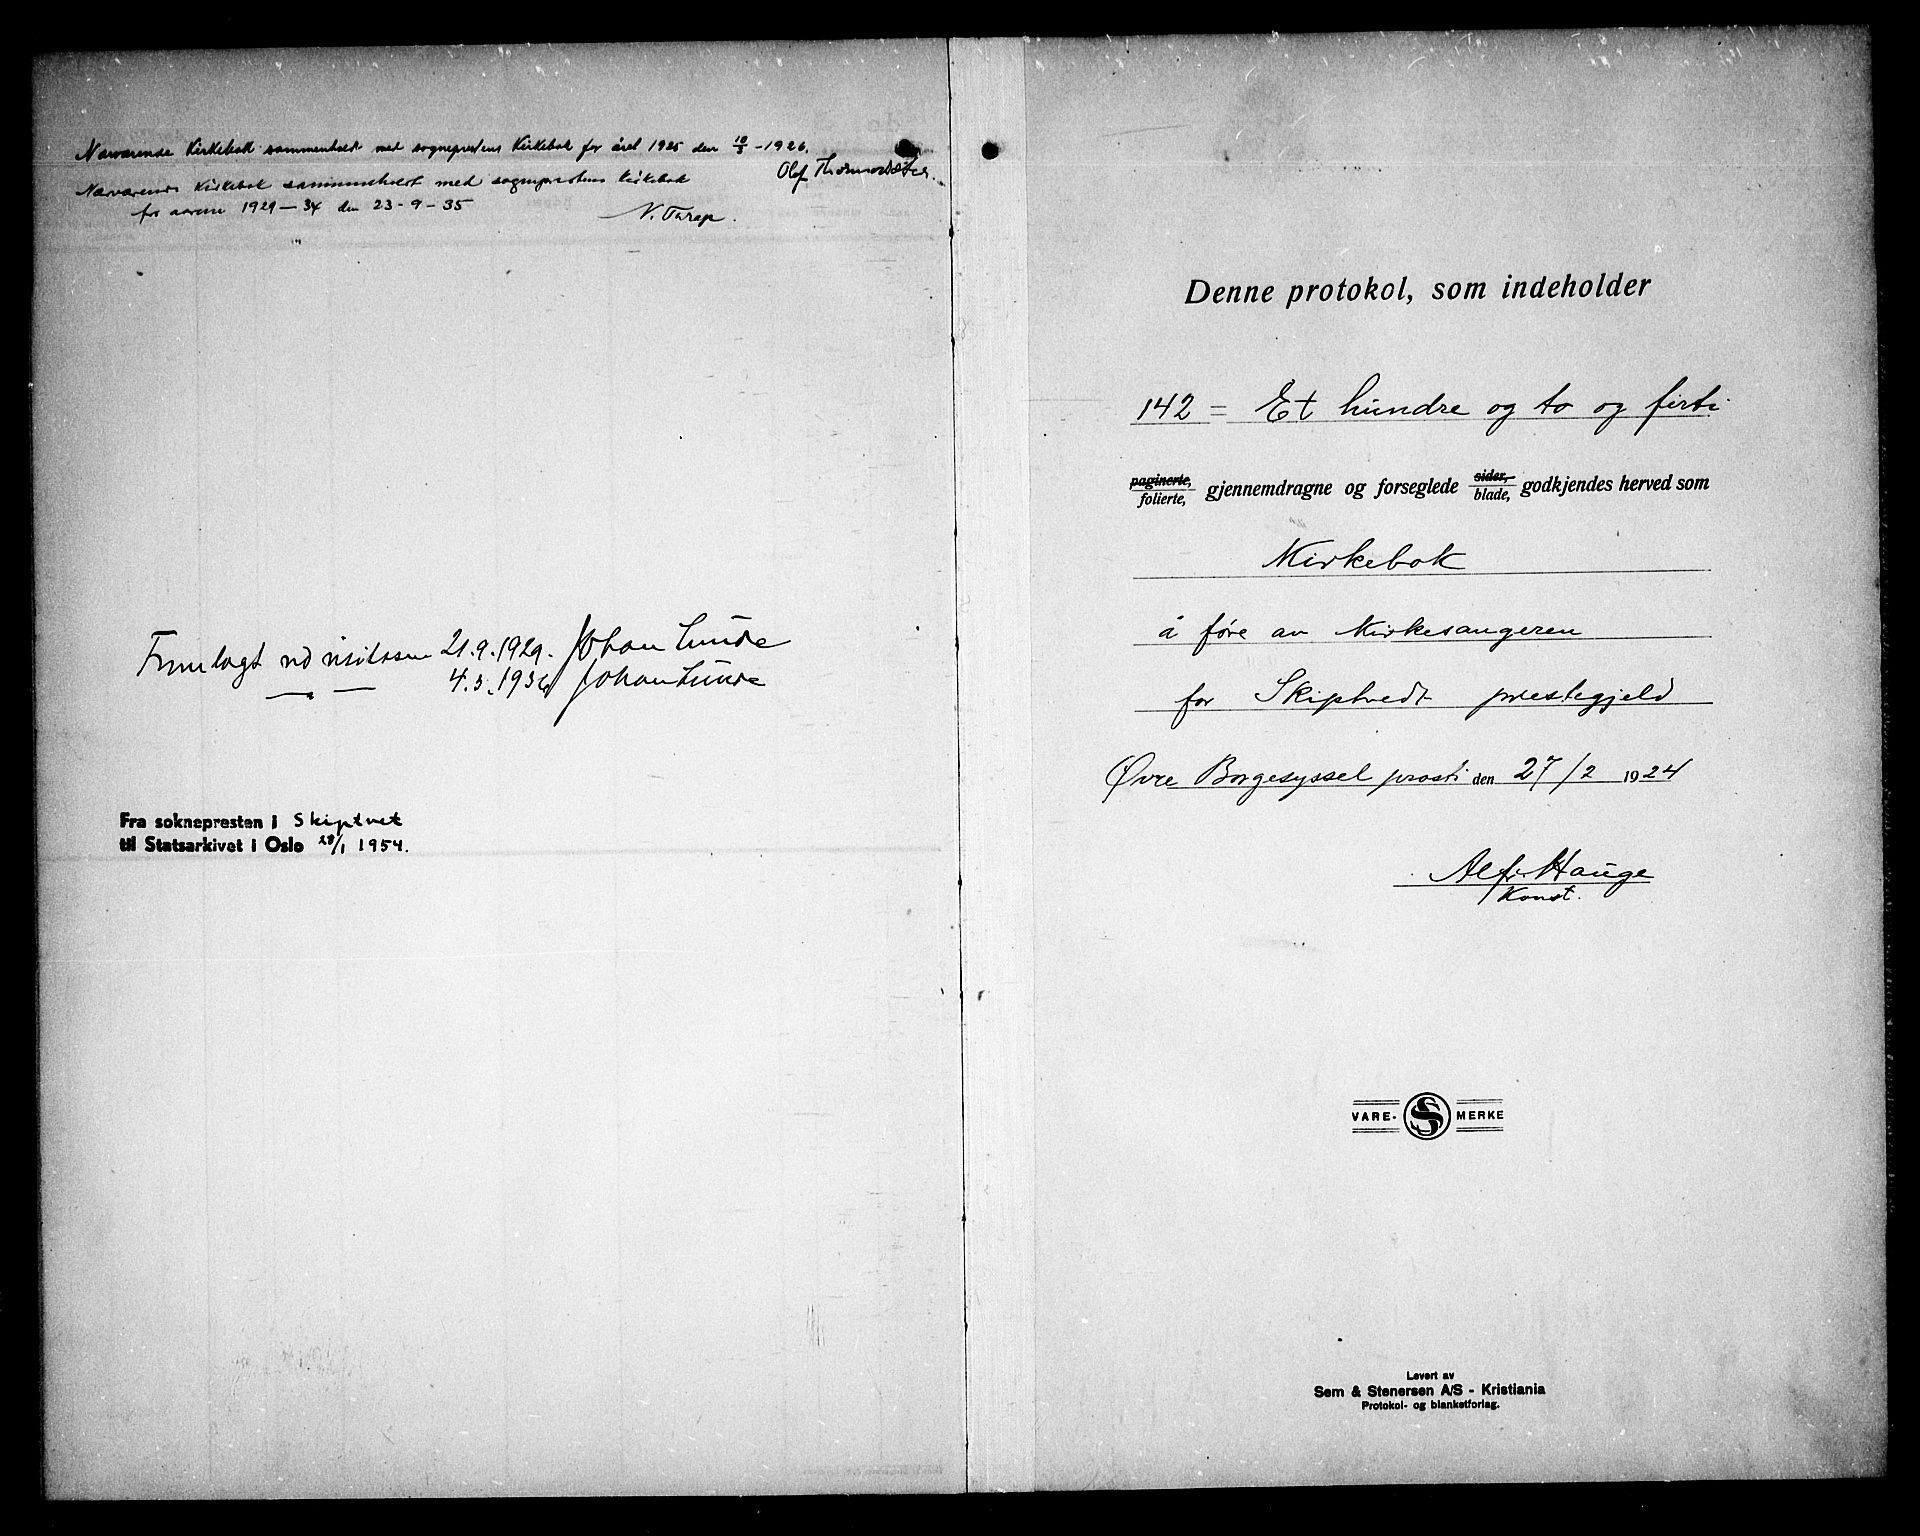 Nærværende Kirkebok sammenholdt med sogneprestens Kirkebok for året 1925 den 10/3 - 1926.
Olof
Nærværende Kirkebok sammenholdt med sogneprestens Kirkebok
for aarene 1929 - 34 den 23 - 9 - 35
Fremlagt ved visitasen 21.9.1929. Johan Lunde
— " — 4.3.1936 Johan Lunde
Fra soknepresten i Skiptvet
til Statsarkivet i Oslo 28/1 1954.
Denne protokol, som indeholder
142 = Et hundre og to og firti
paginerte, folierte, gjennemdragne og forseglede sider, blade, godkjendes herved som
Kirkebok
å føre av Kirkesangeren
for Skiptvedt prestegjeld
Øvre Borgesyssel prosti den 27/2 1924
Alfr Hauge
Konst.
VARE- S MERKE
Levert av
Sem & Stenersen A/S - Kristiania
Protokol- og blanketforlag.